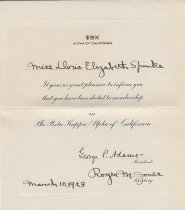 ΦΒΚ
ALPHA OF CALIFORNIA
Miss Doris Elizabeth Spinks
It gives us great pleasure to inform you
that you have been elected to membership
in
The Phi Beta Kappa Alpha of California
George P. Adams
President
Roger M. Jones
Secretary
March 10, 1923